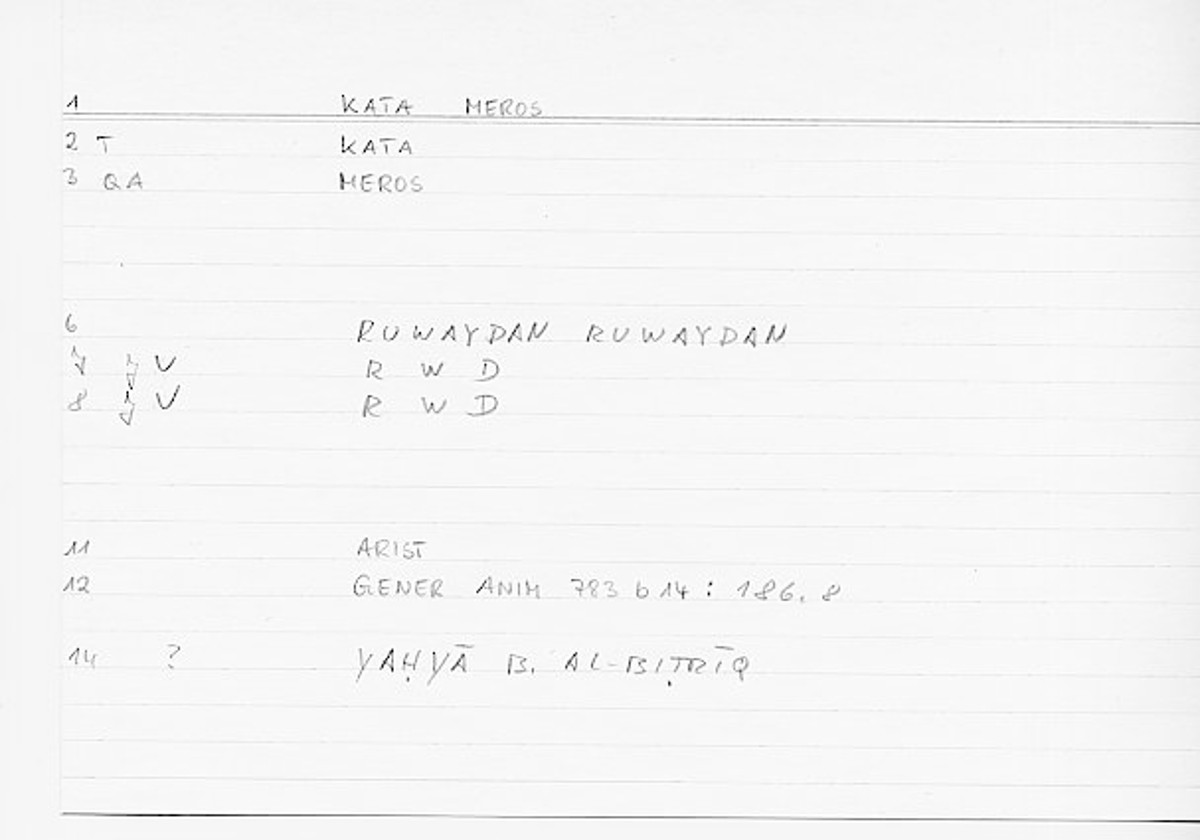 1 KATA MEROS
2 T KATA
3 QA MEROS
6 RUWAYDAN RUWAYDAN
7 V R W D
8 V R W D
11 ARIST
12 GENER ANIM 783 b 14 : 186. 8
14 ? YAḤYĀ B. AL-BIṬRĪQ